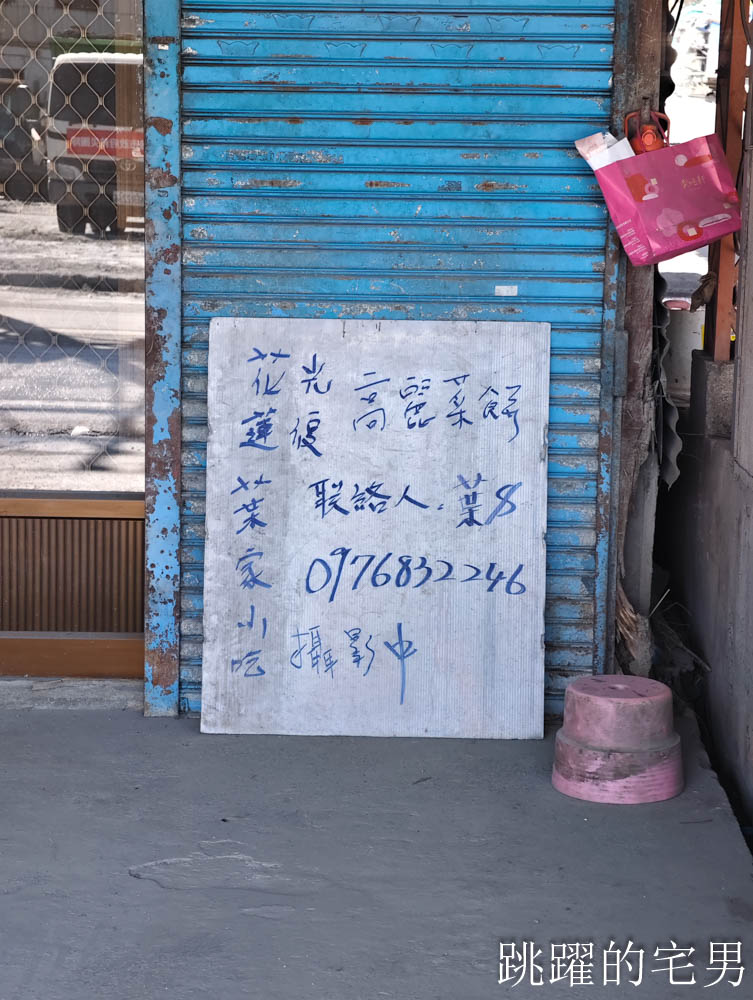 花蓮
光復
高麗菜餅
葉家小吃
联絡人:葉S
0976832246
攝影中
跳躍的宅男